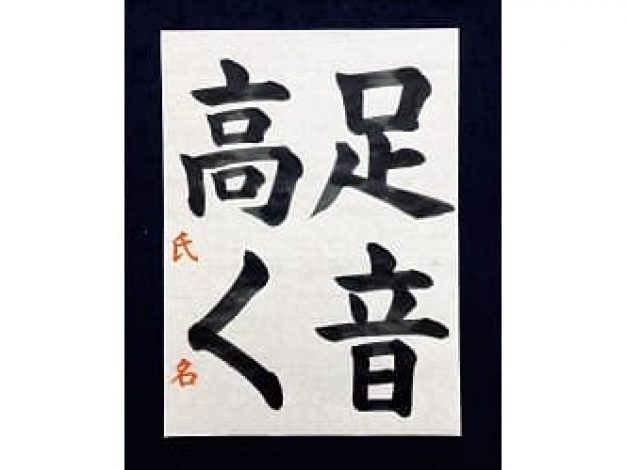 足音
高く
氏名